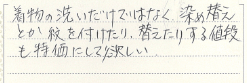 着物の洗いだけではなく、染め替え
とか紋を付けたり、替えたりする値段
も特価にして欲しい